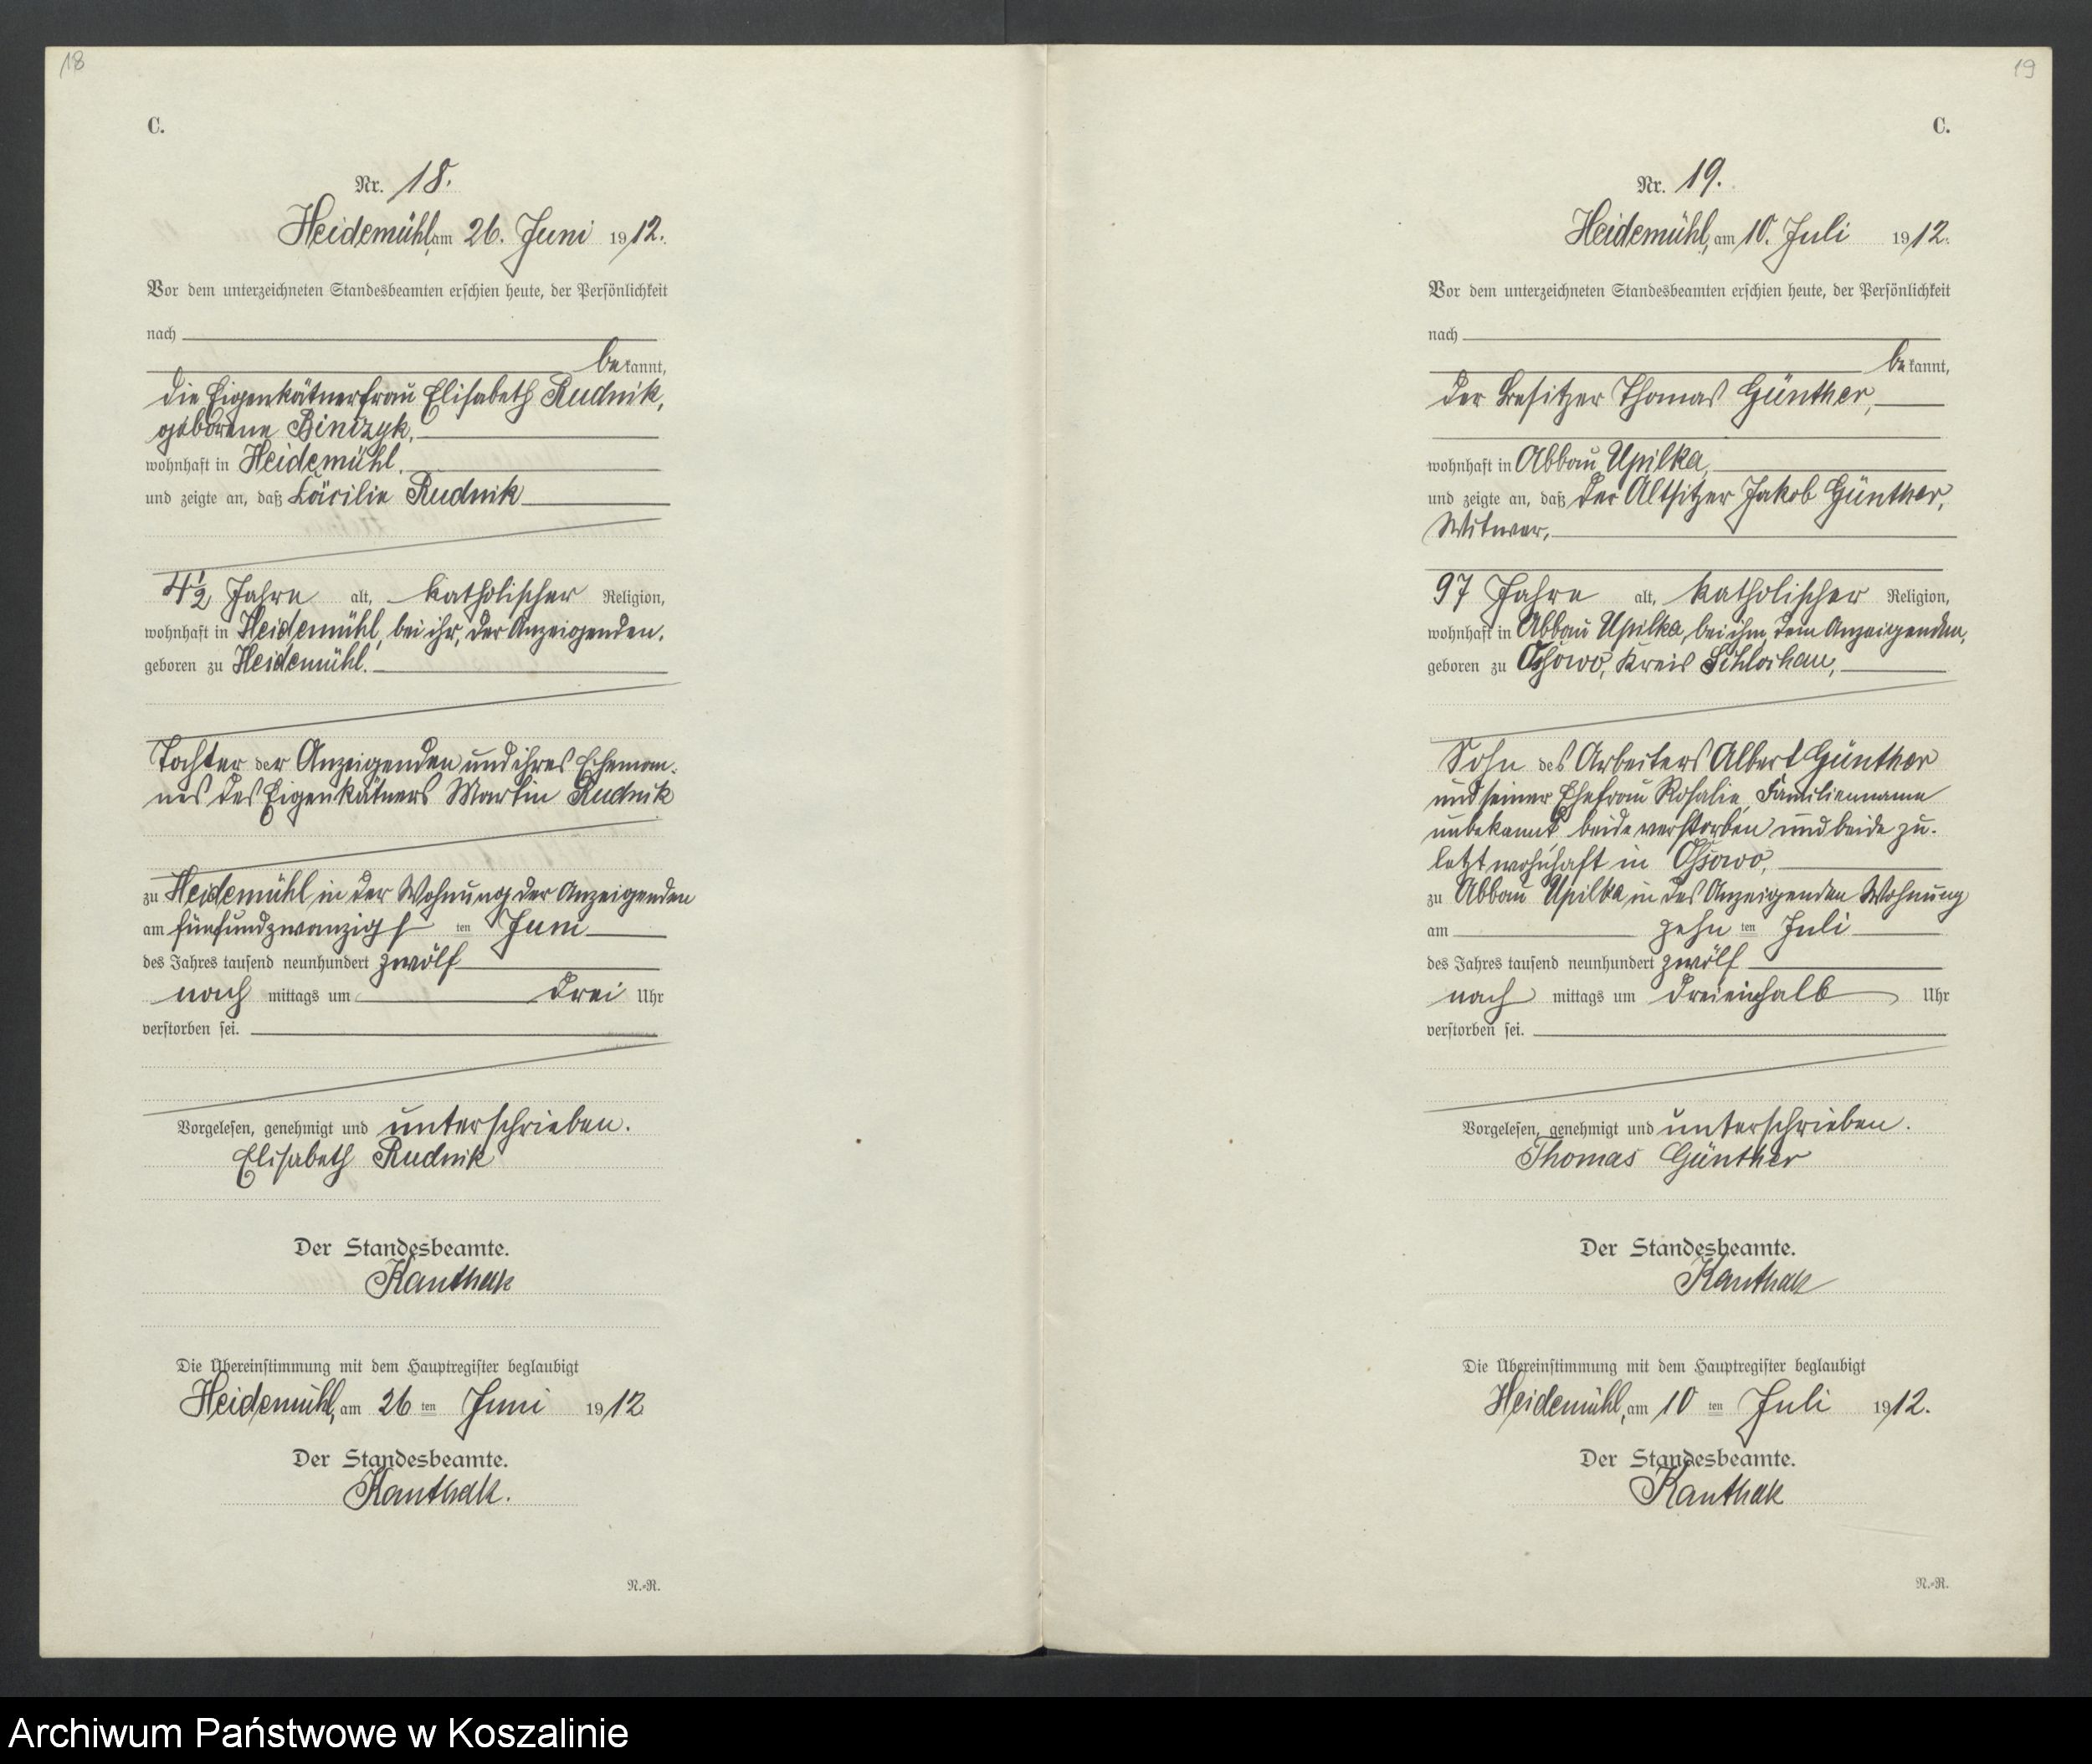 18
C.
Nr. 18.
Heidemühl, am 26. Juni 1912.
Vor dem unterzeichneten Standesbeamten erschien heute, der Persönlichkeit
nach
bekannt,
die Eigenkätnerfrau Elisabeth Rudnik,
geborene Binczyk,
wohnhaft in Heidemühl,
und zeigte an, daß Cäcilie Rudnik
4 1/2 Jahre alt, katholischer Religion,
wohnhaft in Heidemühl, bei ihr, der Anzeigenden,
geboren zu Heidemühl.
Tochter der Anzeigenden und ihres Eheman-
nes des Eigenkätners Martin Rudnik
zu Heidemühl in der Wohnung der Anzeigenden
am fünfundzwanzigsten Juni
des Jahres tausend neunhundert zwölf
nach mittags um drei Uhr
verstorben sei.
Vorgelesen, genehmigt und unterschrieben.
Elisabeth Rudnik
Der Standesbeamte.
Kanthak
Die Übereinstimmung mit dem Hauptregister beglaubigt
Heidemühl, am 26 ten Juni 1912
Der Standesbeamte.
Kanthak.
N.-R.
19
C.
Nr. 19.
Heidemühl, am 10. Juli 1912.
Vor dem unterzeichneten Standesbeamten erschien heute, der Persönlichkeit
nach
bekannt,
der Besitzer Thomas Günther,
wohnhaft in Abbau Upilka,
und zeigte an, daß der Altsitzer Jakob Günther,
Witwer,
97 Jahre alt, katholischer Religion,
wohnhaft in Abbau Upilka, bei ihm, dem Anzeigenden,
geboren zu Ossowo, Kreis Schlochau,
Sohn des Arbeiters Albert Günther
und seiner Ehefrau Rosalie, Familienname
unbekannt, beide verstorben und beide zu-
letzt wohnhaft in Ossowo,
zu Abbau Upilka, in des Anzeigenden Wohnung
am zehn ten Juli
des Jahres tausend neunhundert zwölf
nach mittags um dreieinhalb Uhr
verstorben sei.
Vorgelesen, genehmigt und unterschrieben.
Thomas Günther
Der Standesbeamte.
Kanthak
Die Übereinstimmung mit dem Hauptregister beglaubigt
Heidemühl, am 10 ten Juli 1912.
Der Standesbeamte.
Kanthak
N.-R.
Archiwum Państwowe w Koszalinie